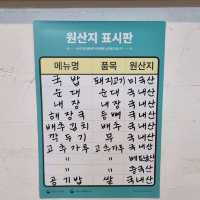 원산지 표시판
메뉴명 품목 원산지
국밥 돼지고기 미국산
순대 순대 국내산
내장 내장 국내산
해장국 국내산
배추김치 배추 국내산
깍두기 무 국내산
고추가루 고추가루 국내산
" " 베트남산
" " 중국산
공기밥 쌀 국내산